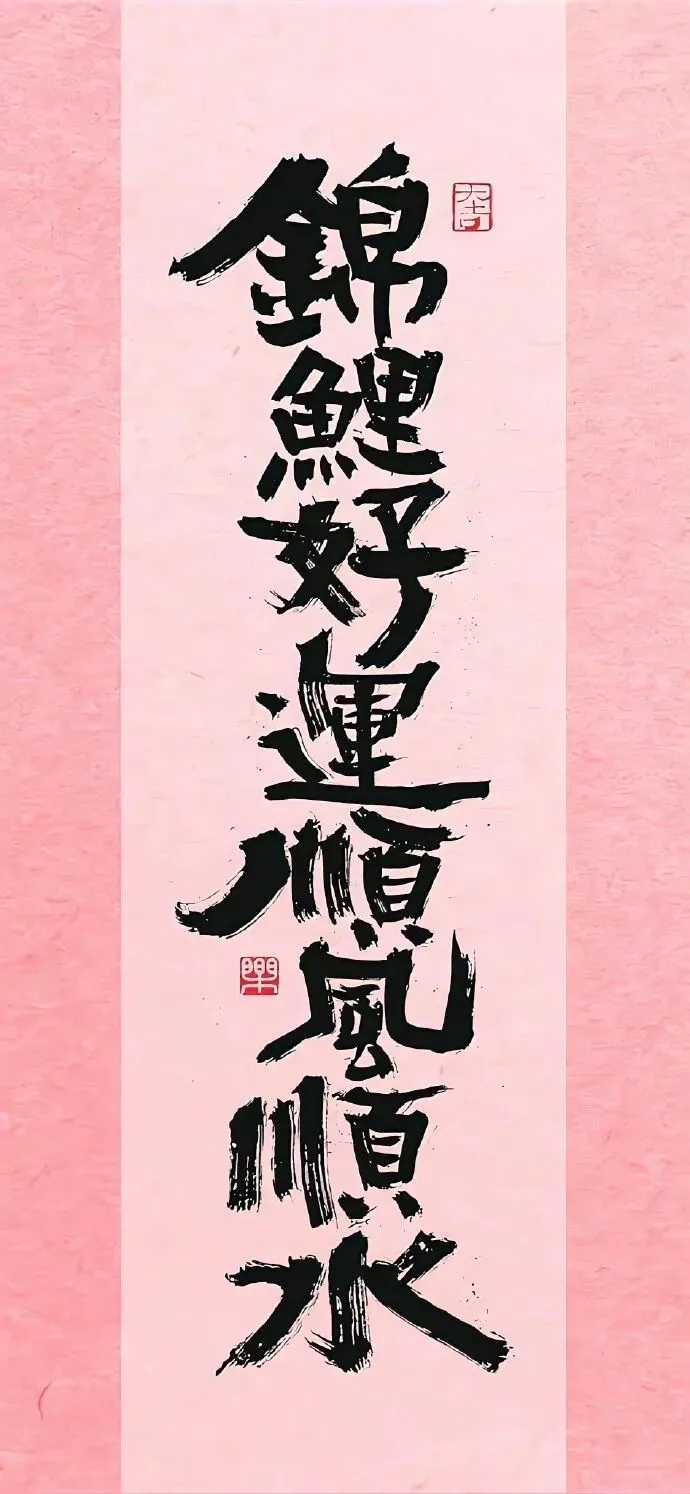 錦鯉好運順風順水
大吉